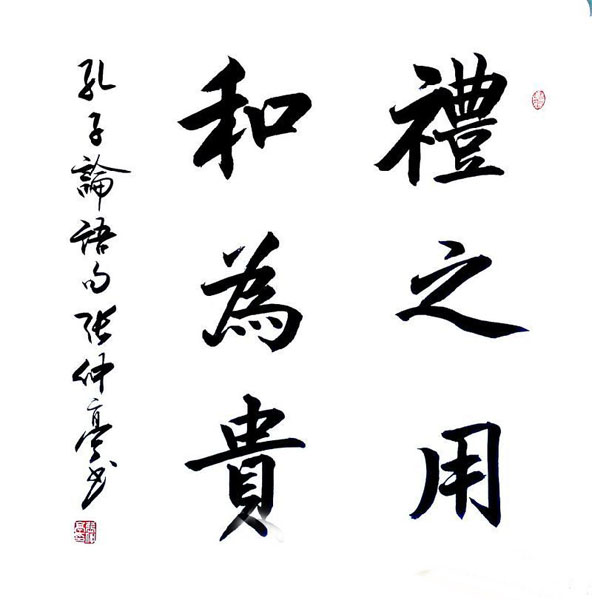 禮之用
和為貴
孔子論語句張仲亭書